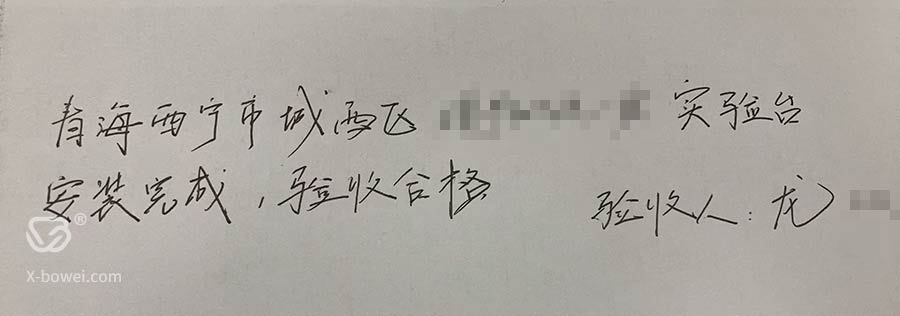 青海西宁市城西区 实验台
安装完成，验收合格
验收人：龙
®
X-bowei.com